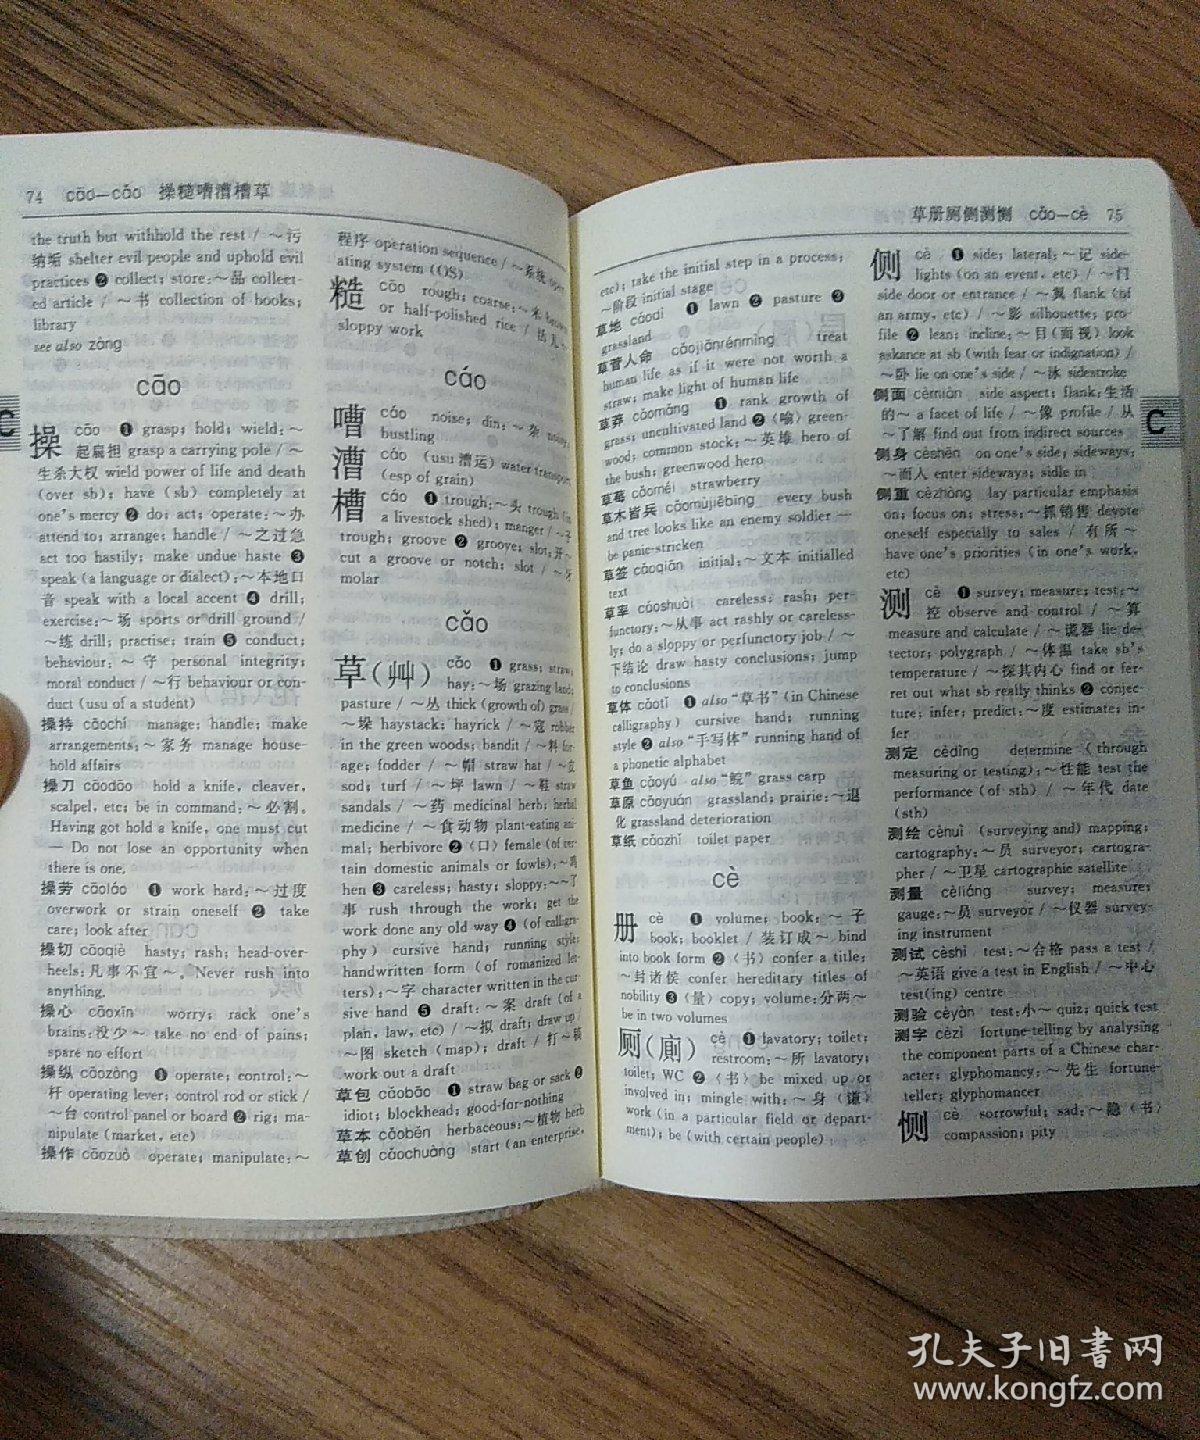 74 cāo—cǎo 操糙嘈漕槽草
the truth but withhold the rest / ～污
纳垢 shelter evil people and uphold evil
practices ❷ collect; store:～品 collect-
ed article / ～书 collection of books;
library
see also zàng
cāo
操 cāo ❶ grasp; hold; wield:～
起扁担 grasp a carrying pole / ～
生杀大权 wield power of life and death
(over sb); have (sb) completely at
one's mercy ❷ do; act; operate:～办
attend to; arrange; handle / ～之过急
act too hastily; make undue haste ❸
speak (a language or dialect):～本地口
音 speak with a local accent ❹ drill;
exercise:～场 sports or drill ground /
～练 drill; practise; train ❺ conduct;
behaviour:～守 personal integrity;
moral conduct / ～行 behaviour or con-
duct (usu of a student)
操持 cāochí manage; handle; make
arrangements:～家务 manage house-
hold affairs
操刀 cāodāo hold a knife, cleaver,
scalpel, etc; be in command:～必割。
Having got hold a knife, one must cut
— Do not lose an opportunity when
there is one.
操劳 cāoláo ❶ work hard:～过度
overwork or strain oneself ❷ take
care; look after
操切 cāoqiè hasty; rash; head-over-
heels:凡事不宜～。Never rush into
anything.
操心 cāoxīn worry; rack one's
brains:没少～ take no end of pains;
spare no effort
操纵 cāozòng ❶ operate; control:～
杆 operating lever; control rod or stick /
～台 control panel or board ❷ rig; ma-
nipulate (market, etc)
操作 cāozuò operate; manipulate:～
程序 operation sequence / ～系统 oper-
ating system (OS)
糙 cāo rough; coarse:～米 brown
or half-polished rice / 活儿～
sloppy work
cáo
嘈 cáo noise; din:～杂 noisy;
bustling
漕 cáo (usu 漕运) water transport
(esp of grain)
槽 cáo ❶ trough:～头 trough (in
a livestock shed); manger / ～子
trough; groove ❷ groove; slot:开～
cut a groove or notch; slot / ～牙
molar
cǎo
草(艸) cǎo ❶ grass; straw;
hay:～场 grazing land;
pasture / ～丛 thick (growth of) grass /
～垛 haystack; hayrick / ～寇 robber
in the green woods; bandit / ～料 for-
age; fodder / ～帽 straw hat / ～皮
sod; turf / ～坪 lawn / ～鞋 straw
sandals / ～药 medicinal herb; herbal
medicine / ～食动物 plant-eating ani-
mal; herbivore ❷〈口〉female (of cer-
tain domestic animals or fowls):～鸡
hen ❸ careless; hasty; sloppy:～～了
事 rush through the work; get the
work done any old way ❹ (of calligra-
phy) cursive hand; running style;
handwritten form (of romanized let-
ters):～字 character written in the cur-
sive hand ❺ draft:～案 draft (of a
plan, law, etc) / ～拟 draft; draw up /
～图 sketch (map); draft / 打～稿
work out a draft
草包 cǎobāo ❶ straw bag or sack ❷
idiot; blockhead; good-for-nothing
草本 cǎoběn herbaceous:～植物 herb
草创 cǎochuàng start (an enterprise,
草册厕侧测恻 cǎo—cè 75
etc); take the initial step in a process:
～阶段 initial stage
草地 cǎodì ❶ lawn ❷ pasture ❸
grassland
草菅人命 cǎojiānrénmìng treat
human life as if it were not worth a
straw; make light of human life
草莽 cǎomǎng ❶ rank growth of
grass; uncultivated land ❷〈喻〉green-
wood; common stock:～英雄 hero of
the bush; greenwood hero
草莓 cǎoméi strawberry
草木皆兵 cǎomùjiēbīng every bush
and tree looks like an enemy soldier —
be panic-stricken
草签 cǎoqiān initial:～文本 initialled
text
草率 cǎoshuài careless; rash; per-
functory:～从事 act rashly or careless-
ly; do a sloppy or perfunctory job / ～
下结论 draw hasty conclusions; jump
to conclusions
草体 cǎotǐ ❶ also “草书” (in Chinese
calligraphy) cursive hand; running
style ❷ also “手写体” running hand of
a phonetic alphabet
草鱼 cǎoyú also “鲩” grass carp
草原 cǎoyuán grassland; prairie:～退
化 grassland deterioration
草纸 cǎozhǐ toilet paper
cè
册 cè ❶ volume; book:～子
book; booklet / 装订成～ bind
into book form ❷〈书〉confer a title:
～封诸侯 confer hereditary titles of
nobility ❸〈量〉copy; volume:分两～
be in two volumes
厕(廁) cè ❶ lavatory; toilet;
restroom:～所 lavatory;
toilet; WC ❷〈书〉be mixed up or
involved in; mingle with:～身 (谦)
work (in a particular field or depart-
ment); be (with certain people)
侧 cè ❶ side; lateral:～记 side-
lights (on an event, etc) / ～门
side door or entrance / ～翼 flank (of
an army, etc) / ～影 silhouette; pro-
file ❷ lean; incline:～目(而视) look
askance at sb (with fear or indignation) /
～卧 lie on one's side / ～泳 sidestroke
侧面 cèmiàn side aspect; flank:生活
的～ a facet of life / ～像 profile / 从
～了解 find out from indirect sources
侧身 cèshēn on one's side; sideways:
～而入 enter sideways; sidle in
侧重 cèzhòng lay particular emphasis
on; focus on; stress:～抓销售 devote
oneself especially to sales / 有所～
have one's priorities (in one's work,
etc)
测 cè ❶ survey; measure; test:～
控 observe and control / ～算
measure and calculate / ～谎器 lie de-
tector; polygraph / ～体温 take sb's
temperature / ～探其内心 find or fer-
ret out what sb really thinks ❷ conjec-
ture; infer; predict:～度 estimate; in-
fer
测定 cèdìng determine (through
measuring or testing):～性能 test the
performance (of sth) / ～年代 date
(sth)
测绘 cèhuì (surveying and) mapping;
cartography:～员 surveyor; cartogra-
pher / ～卫星 cartographic satellite
测量 cèliáng survey; measure;
gauge:～员 surveyor / ～仪器 survey-
ing instrument
测试 cèshì test:～合格 pass a test /
～英语 give a test in English / ～中心
test(ing) centre
测验 cèyàn test:小～ quiz; quick test
测字 cèzì fortune-telling by analysing
the component parts of a Chinese char-
acter; glyphomancy:～先生 fortune-
teller; glyphomancer
恻 cè sorrowful; sad:～隐〈书〉
compassion; pity
C
C
孔夫子旧书网
www.kongfz.com